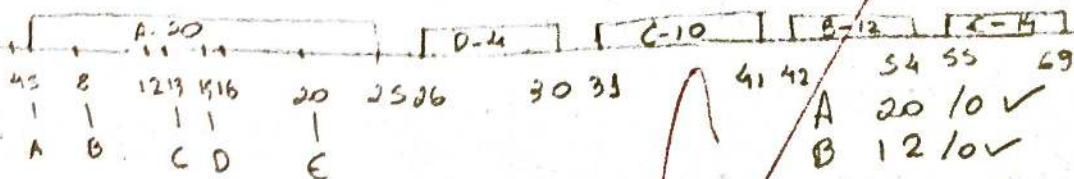 A-20 D-4 C-10 B-12 E-14
45 8 12 13 15 16 20 25 26 30 31 41 42 54 55 69
A B C D E
A 20 /0 ✓
B 12 /0 ✓